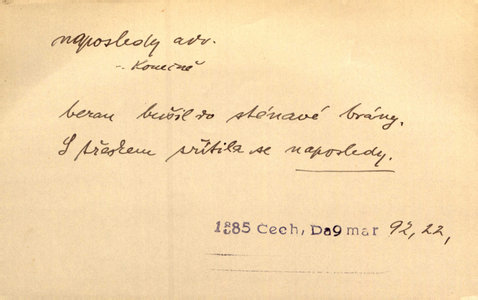 naposledy adv.
-. Konečně
beran bušil do sténavé brány.
S třeskem zřítila se naposledy.
1885 Cech, Dagmar 92, 22,